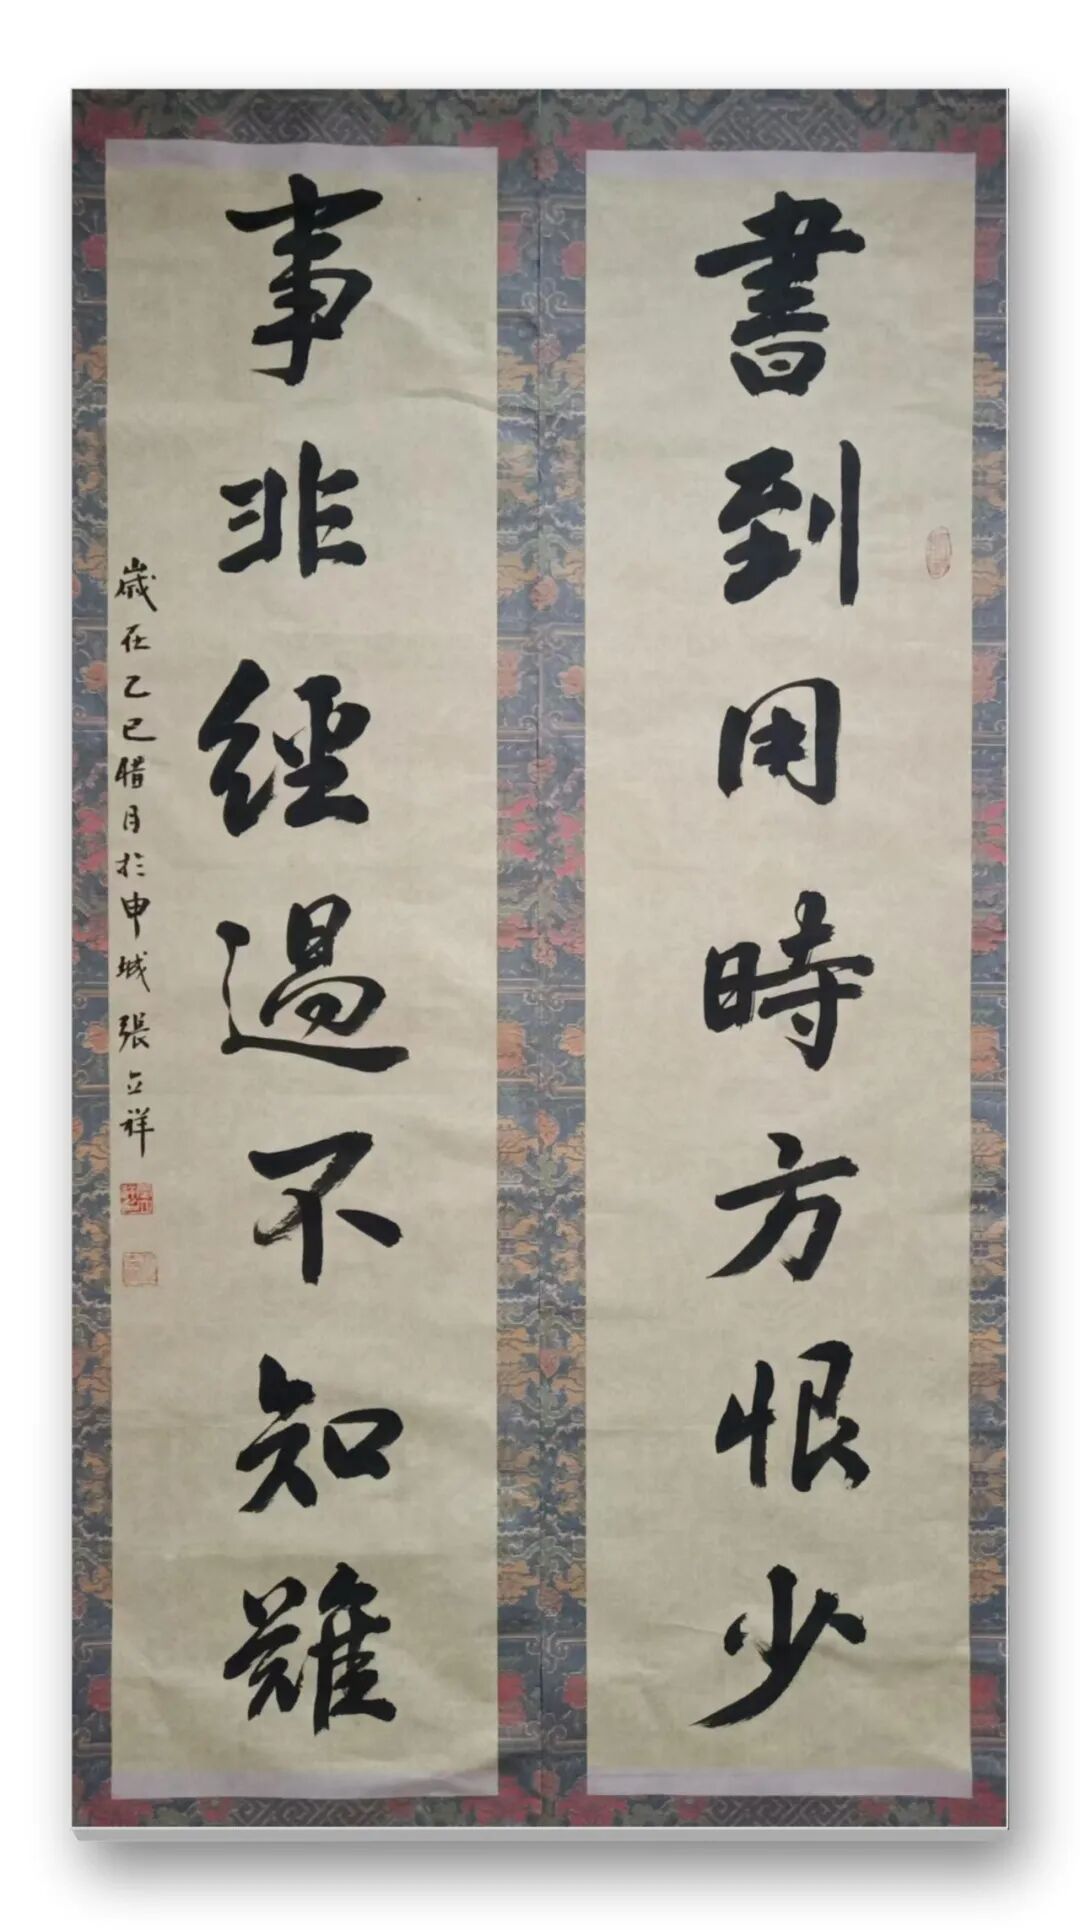 書到用時方恨少
事非經過不知難
歲在乙巳腊月於申城張立祥